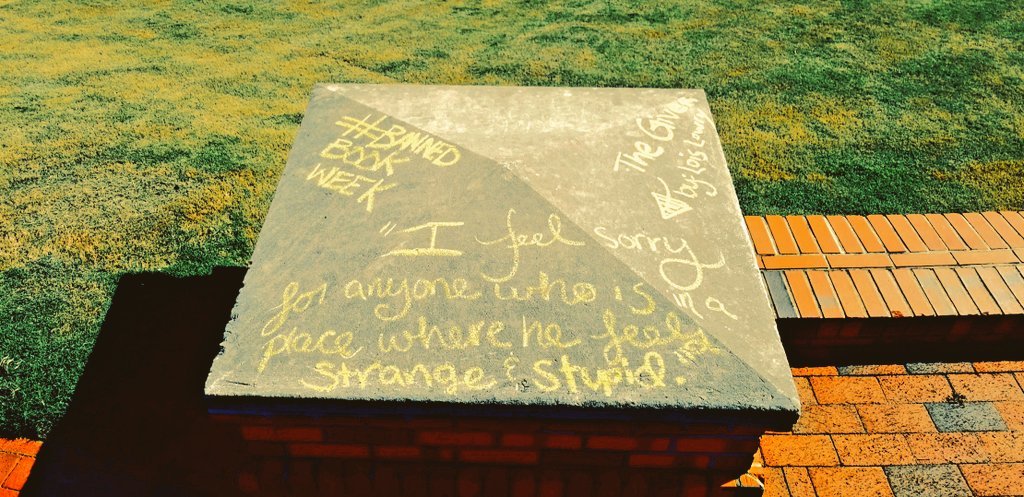 #BANNED
BOOK
WEEK
The Giver
by Lois Lowry
"I feel sorry
for anyone who is in a
place where he feels
strange & stupid."